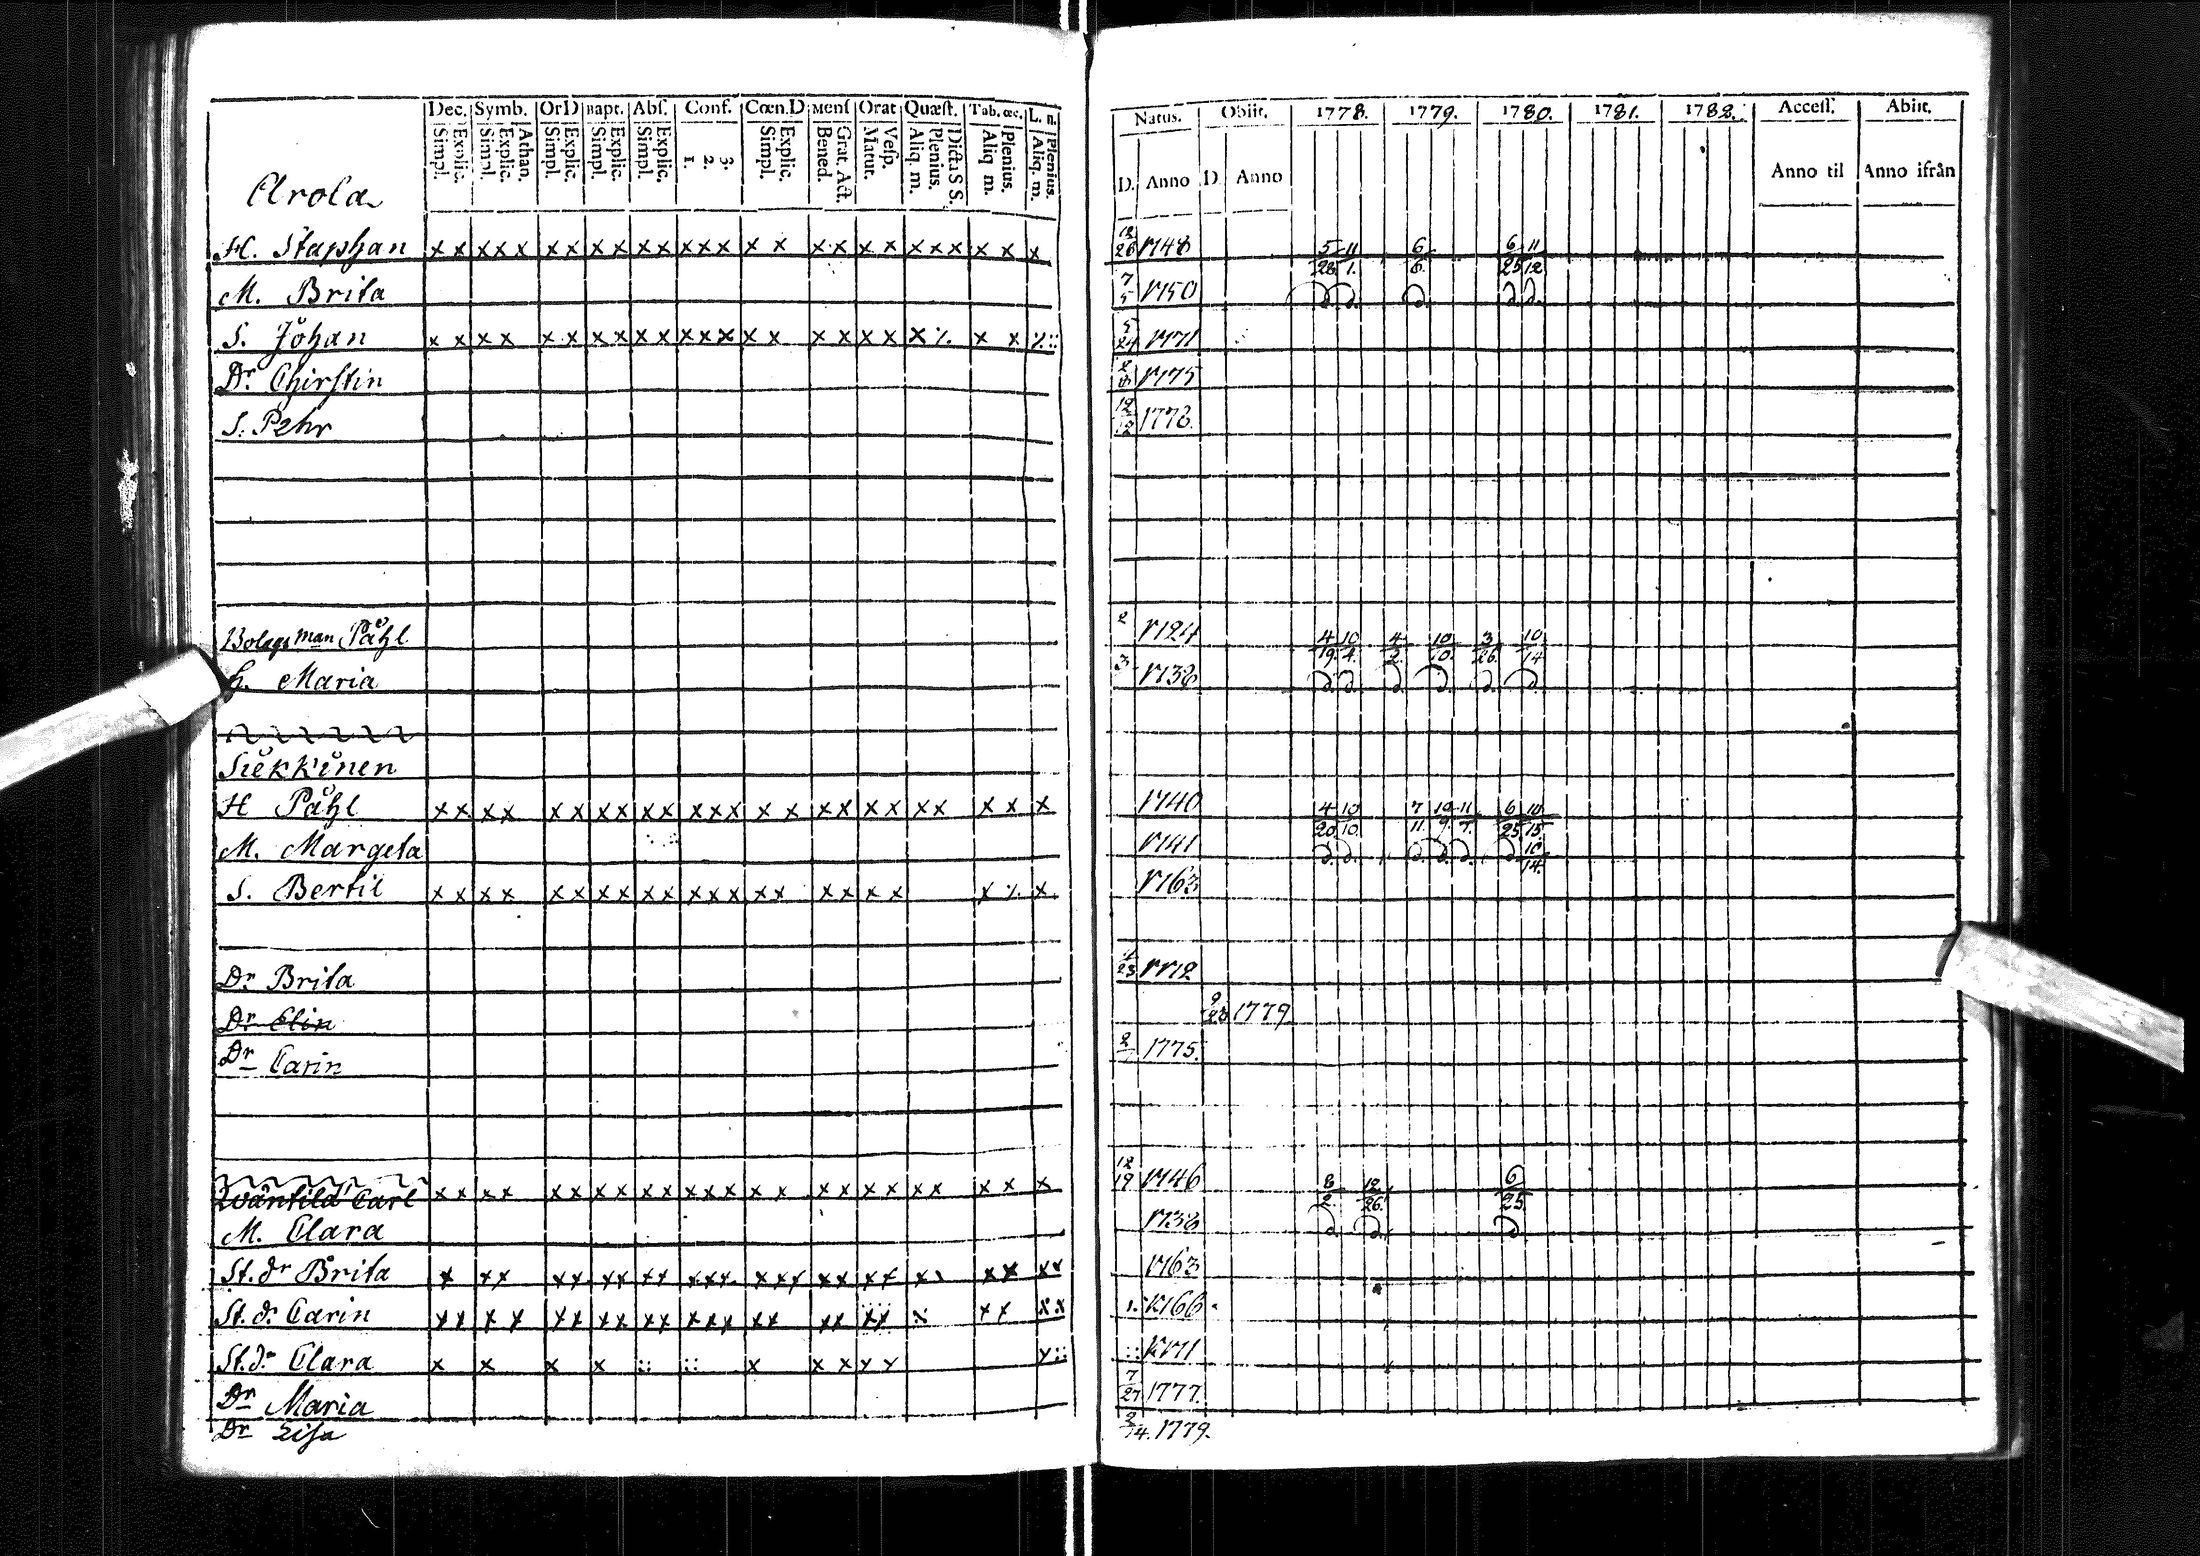 Dec. Symb. OrD Bapt. Abſ. Conf. Cœn.D Menſ Orat Quæſt. Tab. œc. L. n.
Simpl. Explic. Simpl. Explic. Athan. Simpl. Explic. Simpl. Explic. Simpl. Explic. 1. 2. 3. Simpl. Explic. Bened. Grat. Act. Matut. Veſp. Aliq. m. Plenius. Dict. S S. Aliq m. Plenius. Aliq. m. Plenius.
Arola
H. Staphan x x x x x x x x x x x x x x x x x x x x x x x x x
M. Brita
S. Johan x x x x x x x x x x x x x x x x x x x x ⁒ x x ⁒ ::
Dr. Chirstin
S. Pehr
Bolagsman Påhl
h. Maria
Siekkinen
H Påhl x x x x x x x x x x x x x x x x x x x x x x x x
M. Margeta
S. Bertil x x x x x x x x x x x x x x x x x x x x ⁒ x
Dr Brita
Dr Elin
Dr Carin
Carl x x x x x x x x x x x x x x x x x x x x x x x x
M. Clara
St. dr Brita x x x x x x x x x x x x x x x x x x x x x x x x
St. dr Carin x x x x x x x x x x x x x x x x x x x x x x x
St. dr Clara x x x x :: :: x x x x x x ::
Dr Maria
Dr Lisa
Natus. Obiit. 1778. 1779. 1780. 1781. 1782. Acceſſ. Abiit.
D. Anno D. Anno Anno til Anno ifrån
12/26 1748 5/28 11/1. 6/6. 6/25 11/12
7/5 1750 d. d. d. d. d.
5/24 1771
1775
12/12 1778.
2 1724 4/19. 10/4. 4/2. 10/10. 3/26. 10/14
3 1738 d. d. d. d. d. d.
1740 4/20 10/10. 7/11. 10/9. 11/7. 6/25 10/15.
1741 d. d. d. d. d. d. 10/14.
1763
1772
9/28 1779
1775.
12/19 1746 8/2. 12/26. 6/25.
1738 d. d. d.
1763
1766
1771
7/27 1777.
1779.